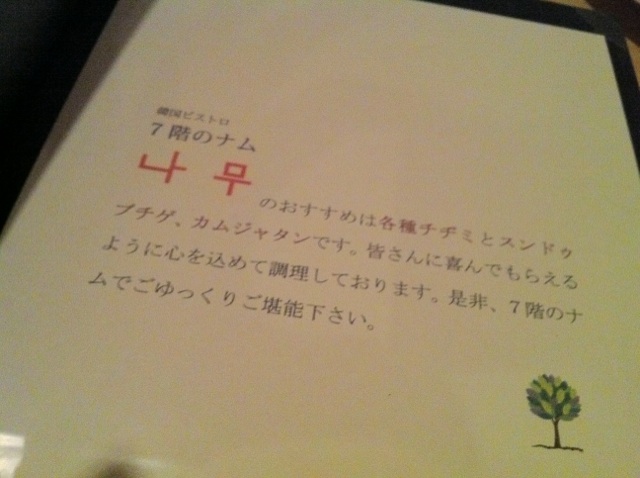 韓国ビストロ
7階のナム
나무
のおすすめは各種チヂミとスンドゥ
ブチゲ、カムジャタンです。皆さんに喜んでもらえる
ように心を込めて調理しております。是非、7階のナ
ムでごゆっくりご堪能下さい。